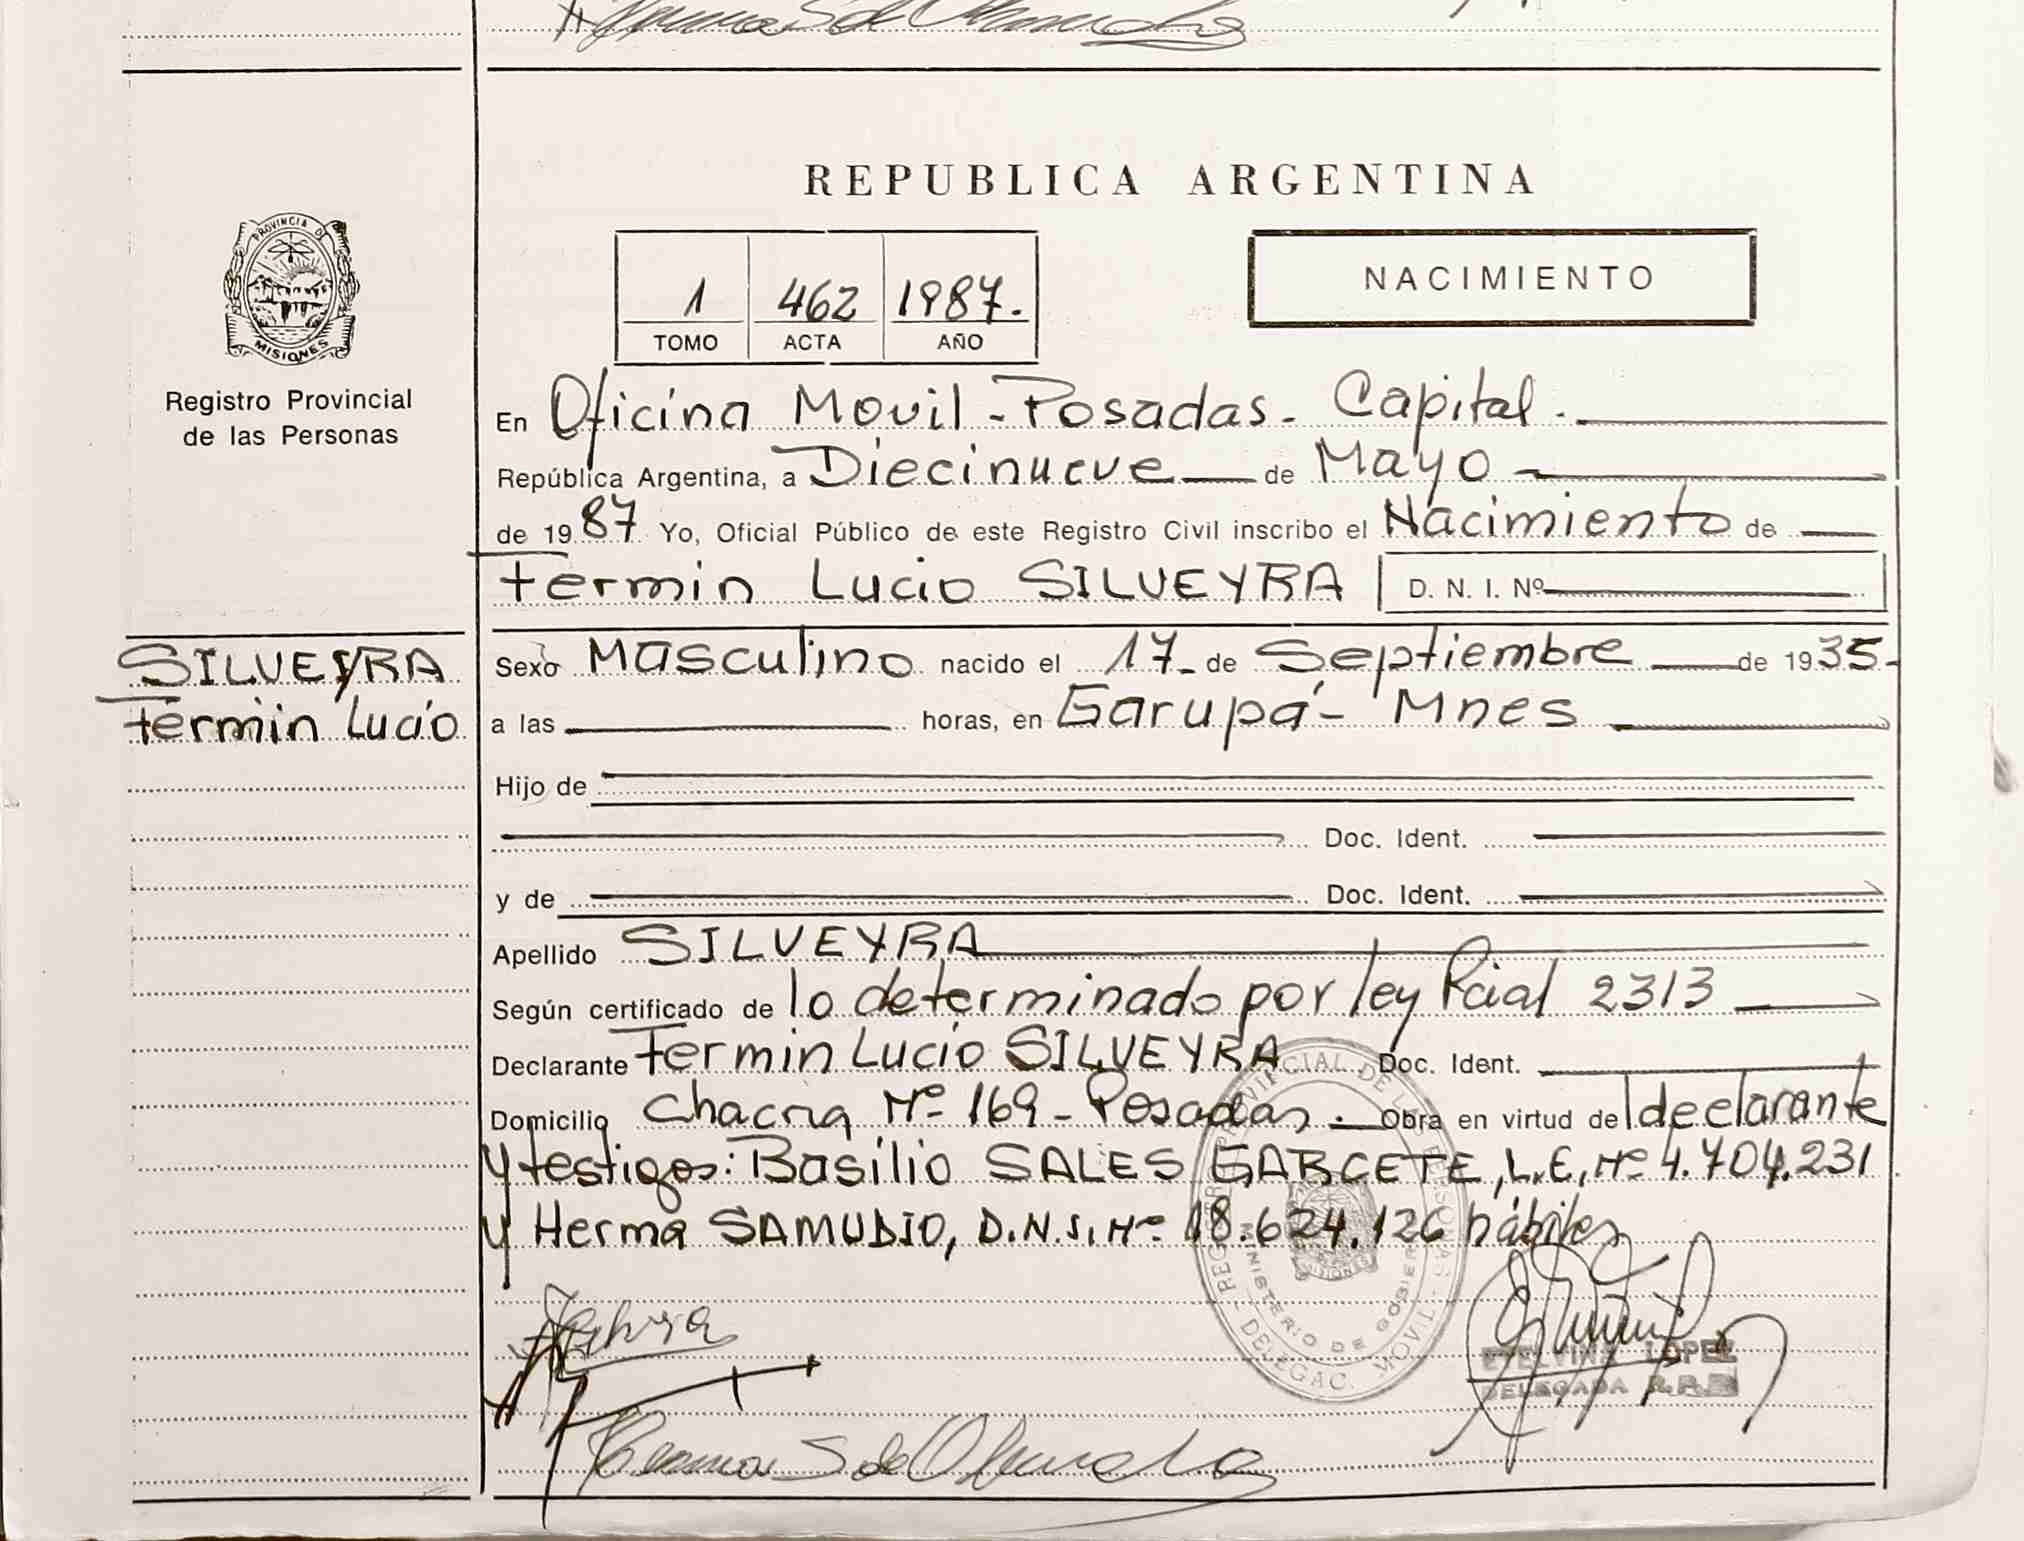 REPUBLICA ARGENTINA
PROVINCIA D
MISIONES
Registro Provincial
de las Personas
1 462 1987.
TOMO ACTA AÑO
NACIMIENTO
En Oficina Movil - Posadas - Capital.
República Argentina, a Diecinueve de Mayo
de 1987 Yo, Oficial Público de este Registro Civil inscribo el Nacimiento de
Fermin Lucio SILVEYRA D. N. I. Nº
SILVEYRA
Fermin Lucio
Sexo Masculino nacido el 17 - de Septiembre de 1935 -
a las horas, en Garupá - Mnes
Hijo de
Doc. Ident.
y de Doc. Ident.
Apellido SILVEYRA
Según certificado de lo determinado por ley Pcial 2313
Declarante Fermin Lucio SILVEYRA Doc. Ident.
Domicilio Chacra Nº 169 - Posadas. Obra en virtud del declarante
y testigos: Basilio SALES GARCETE, L.E, Nº 4.704.231
y Herma SAMUDIO, D.N.I. Nº 18.624.126 hábiles
REGISTRO PROVINCIAL DE LAS PERSONAS
MINISTERIO DE GOBIER
MISIONES
DELEGAC. MOVIL
ETELVINA LOPEZ
DELEGADA R.P.P